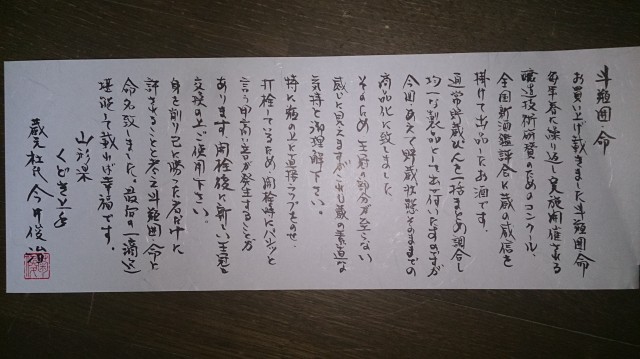 斗瓶囲 命
お買い上げ戴きました斗瓶囲命
毎年春に繰り返し実施開催される
醸造技術研鑽のためのコンクール、
全国新酒鑑評会に蔵の威信を
掛けて出品したお酒です。
通常貯蔵びんを一括まとめ調合し
均一な製品として出て行いたすのですが
今回あえて貯蔵状態そのままでの
商品化と致しました
そのため王冠の部分が至らない
感じに見えますがこれも蔵の素直な
気持と御理解下さい。
特に瓶の口と直接ラップをのせ、
打栓しているため、開栓時にパシッと
言う甲高い音が発生することが
あります。開栓後に新しい王冠と
交換の上ご使用下さい。
身を削り己に勝った者だけに
許されることと考え斗瓶囲命と
命名致しました。最后の一滴迄
堪能して戴ければ幸福です。
山形県
くどき上手
蔵元杜氏 今井俊治